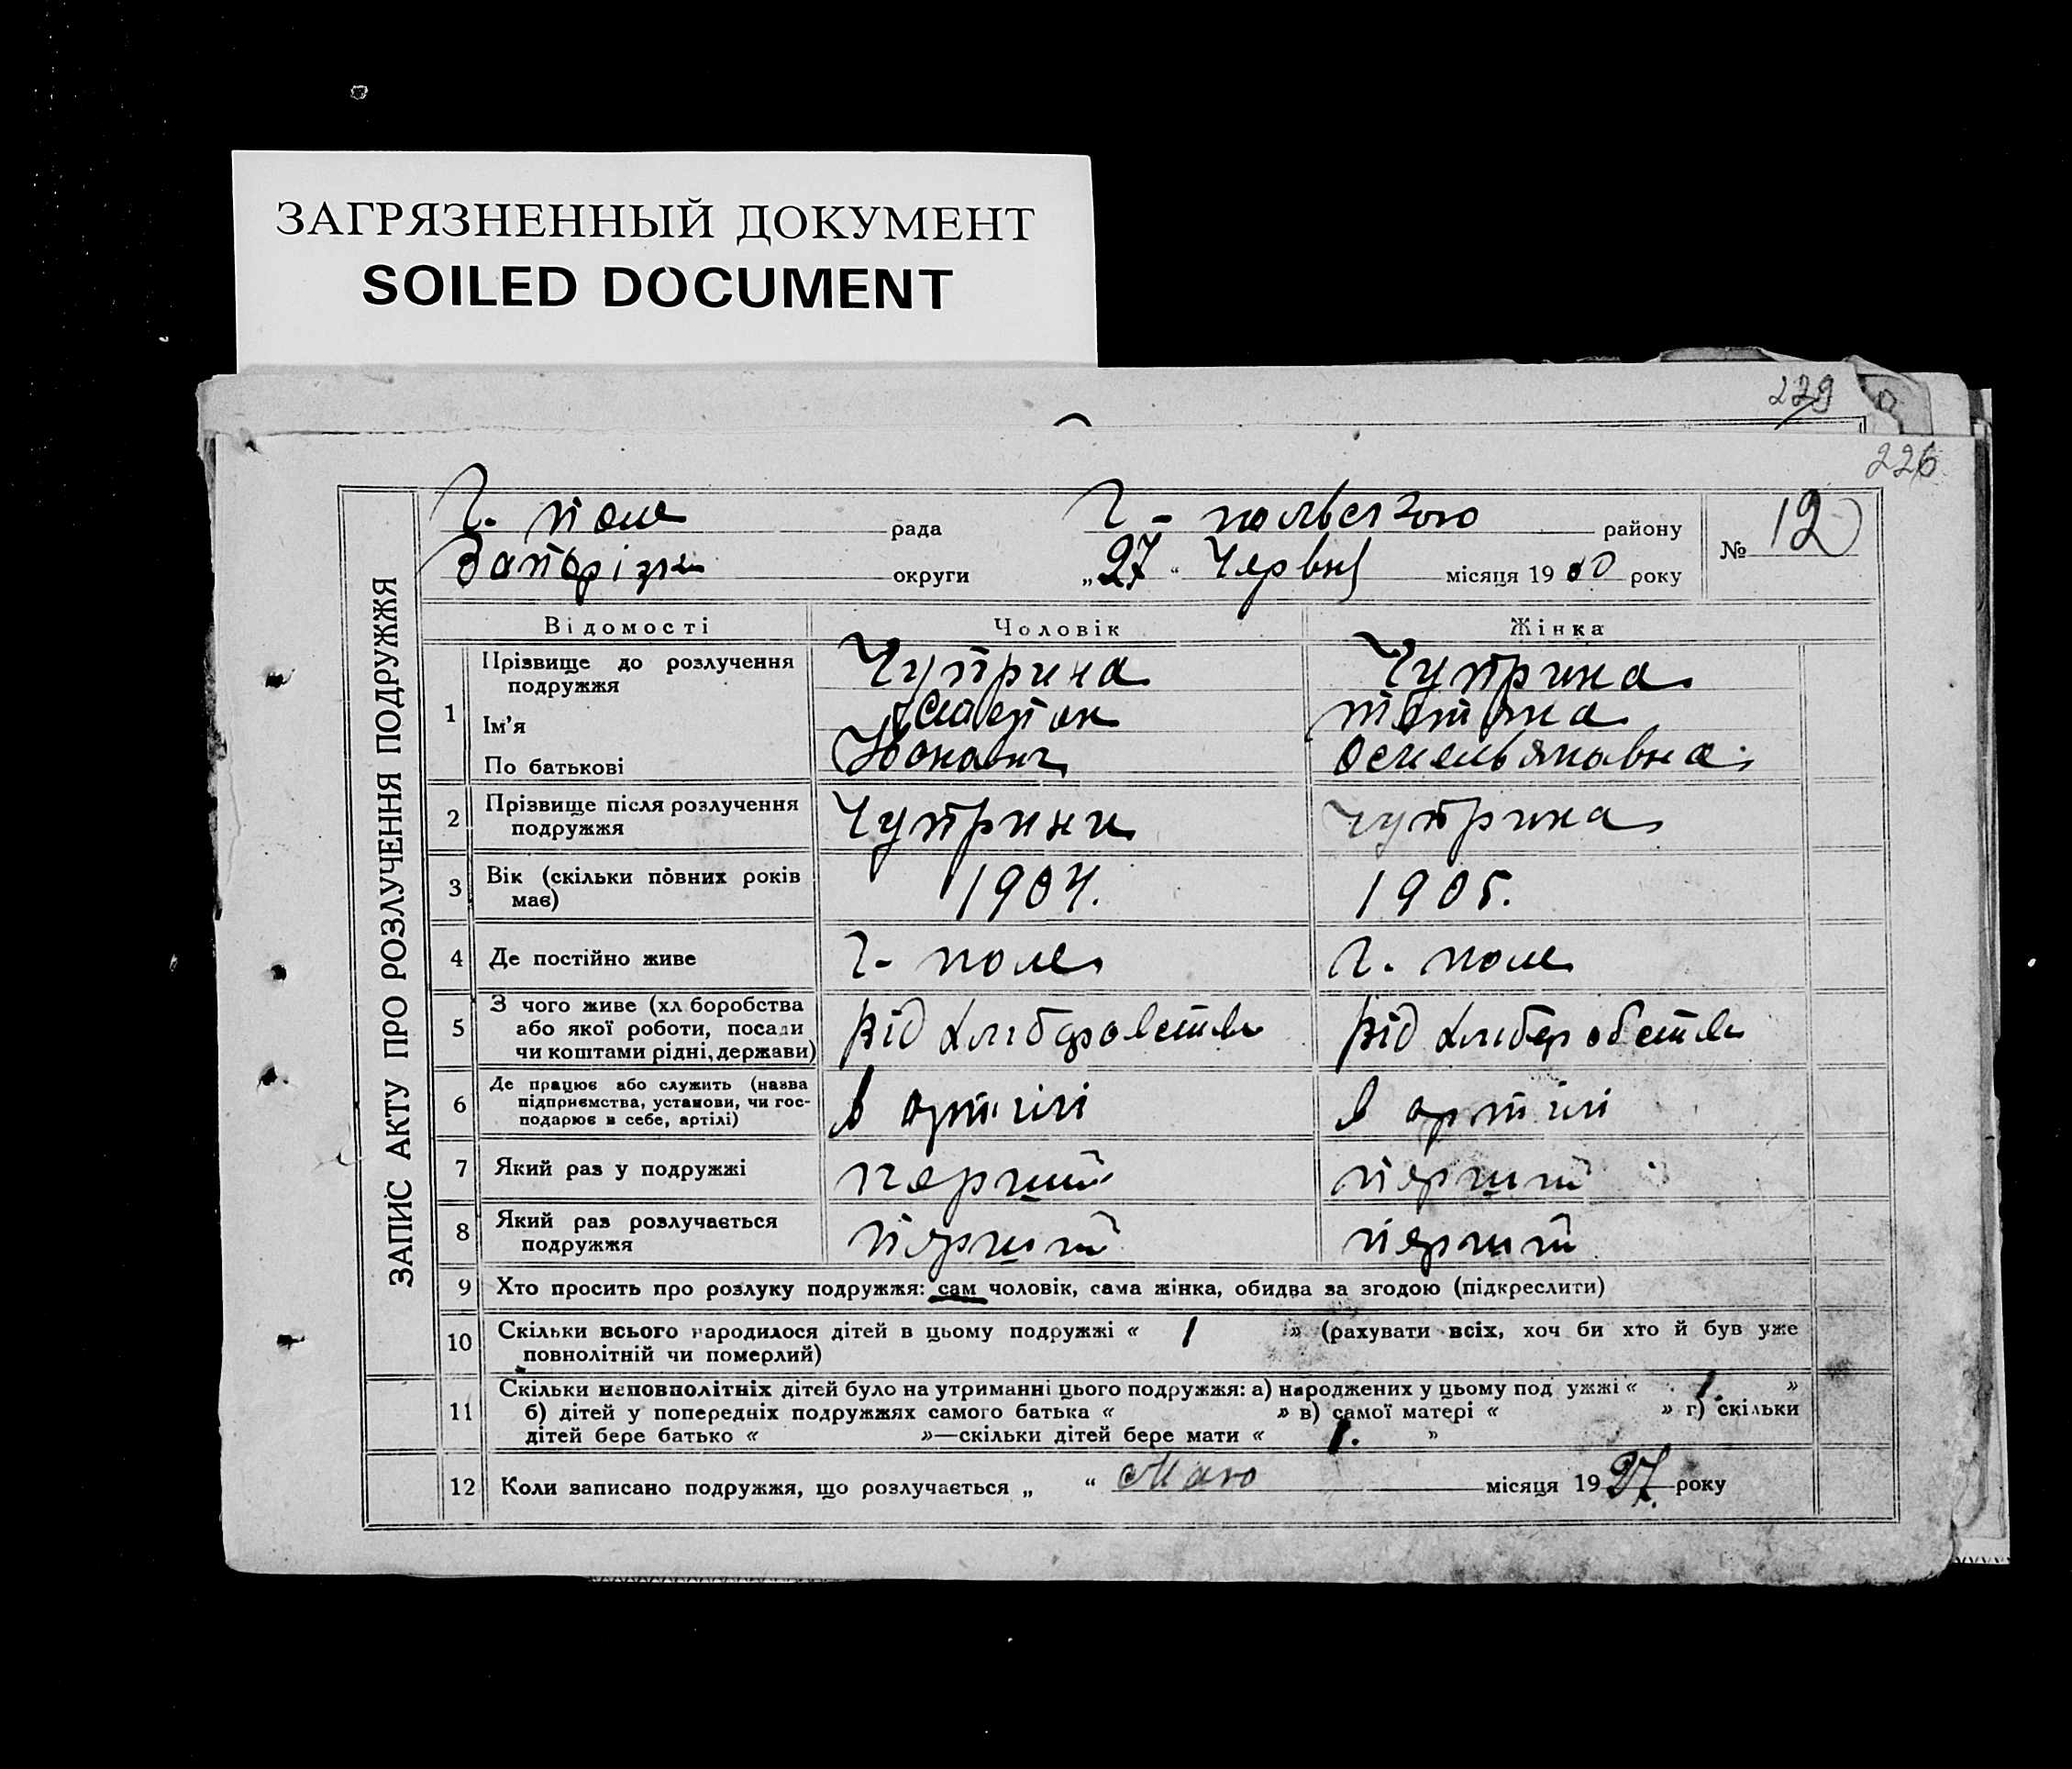 ЗАГРЯЗНЕННЫЙ ДОКУМЕНТ
SOILED DOCUMENT
229
226
ЗАПИС АКТУ ПРО РОЗЛУЧЕННЯ ПОДРУЖЖЯ
Г. поле рада Г- польського району № 12
округи „27“ Червня місяця 19 року
Відомості Чоловік Жінка
1 Прізвище до розлучення подружжя Чуприна Чуприна
Ім'я
По батькові
2 Прізвище після розлучення подружжя Чуприни Чуприна
3 Вік (скільки повних років має) 1904. 1905.
4 Де постійно живе Г- поле Г. поле
5 З чого живе (хліборобства або якої роботи, посади чи коштами рідні, держави) від від
6 Де працює або служить (назва підприємства, установи, чи господарює в себе, артілі) в артілі в артілі
7 Який раз у подружжі перший перший
8 Який раз розлучається подружжя перший перший
9 Хто просить про розлуку подружжя: сам чоловік, сама жінка, обидва за згодою (підкреслити)
10 Скільки всього народилося дітей в цьому подружжі « 1 » (рахувати всіх, хоч би хто й був уже
повнолітній чи померлий)
11 Скільки неповнолітніх дітей було на утриманні цього подружжя: а) народжених у цьому подружжі « 1. »
б) дітей у попередніх подружжях самого батька « » в) самої матері « » г) скільки
дітей бере батько « »—скільки дітей бере мати « 1. »
12 Коли записано подружжя, що розлучається „ “ Маю місяця 1927. року